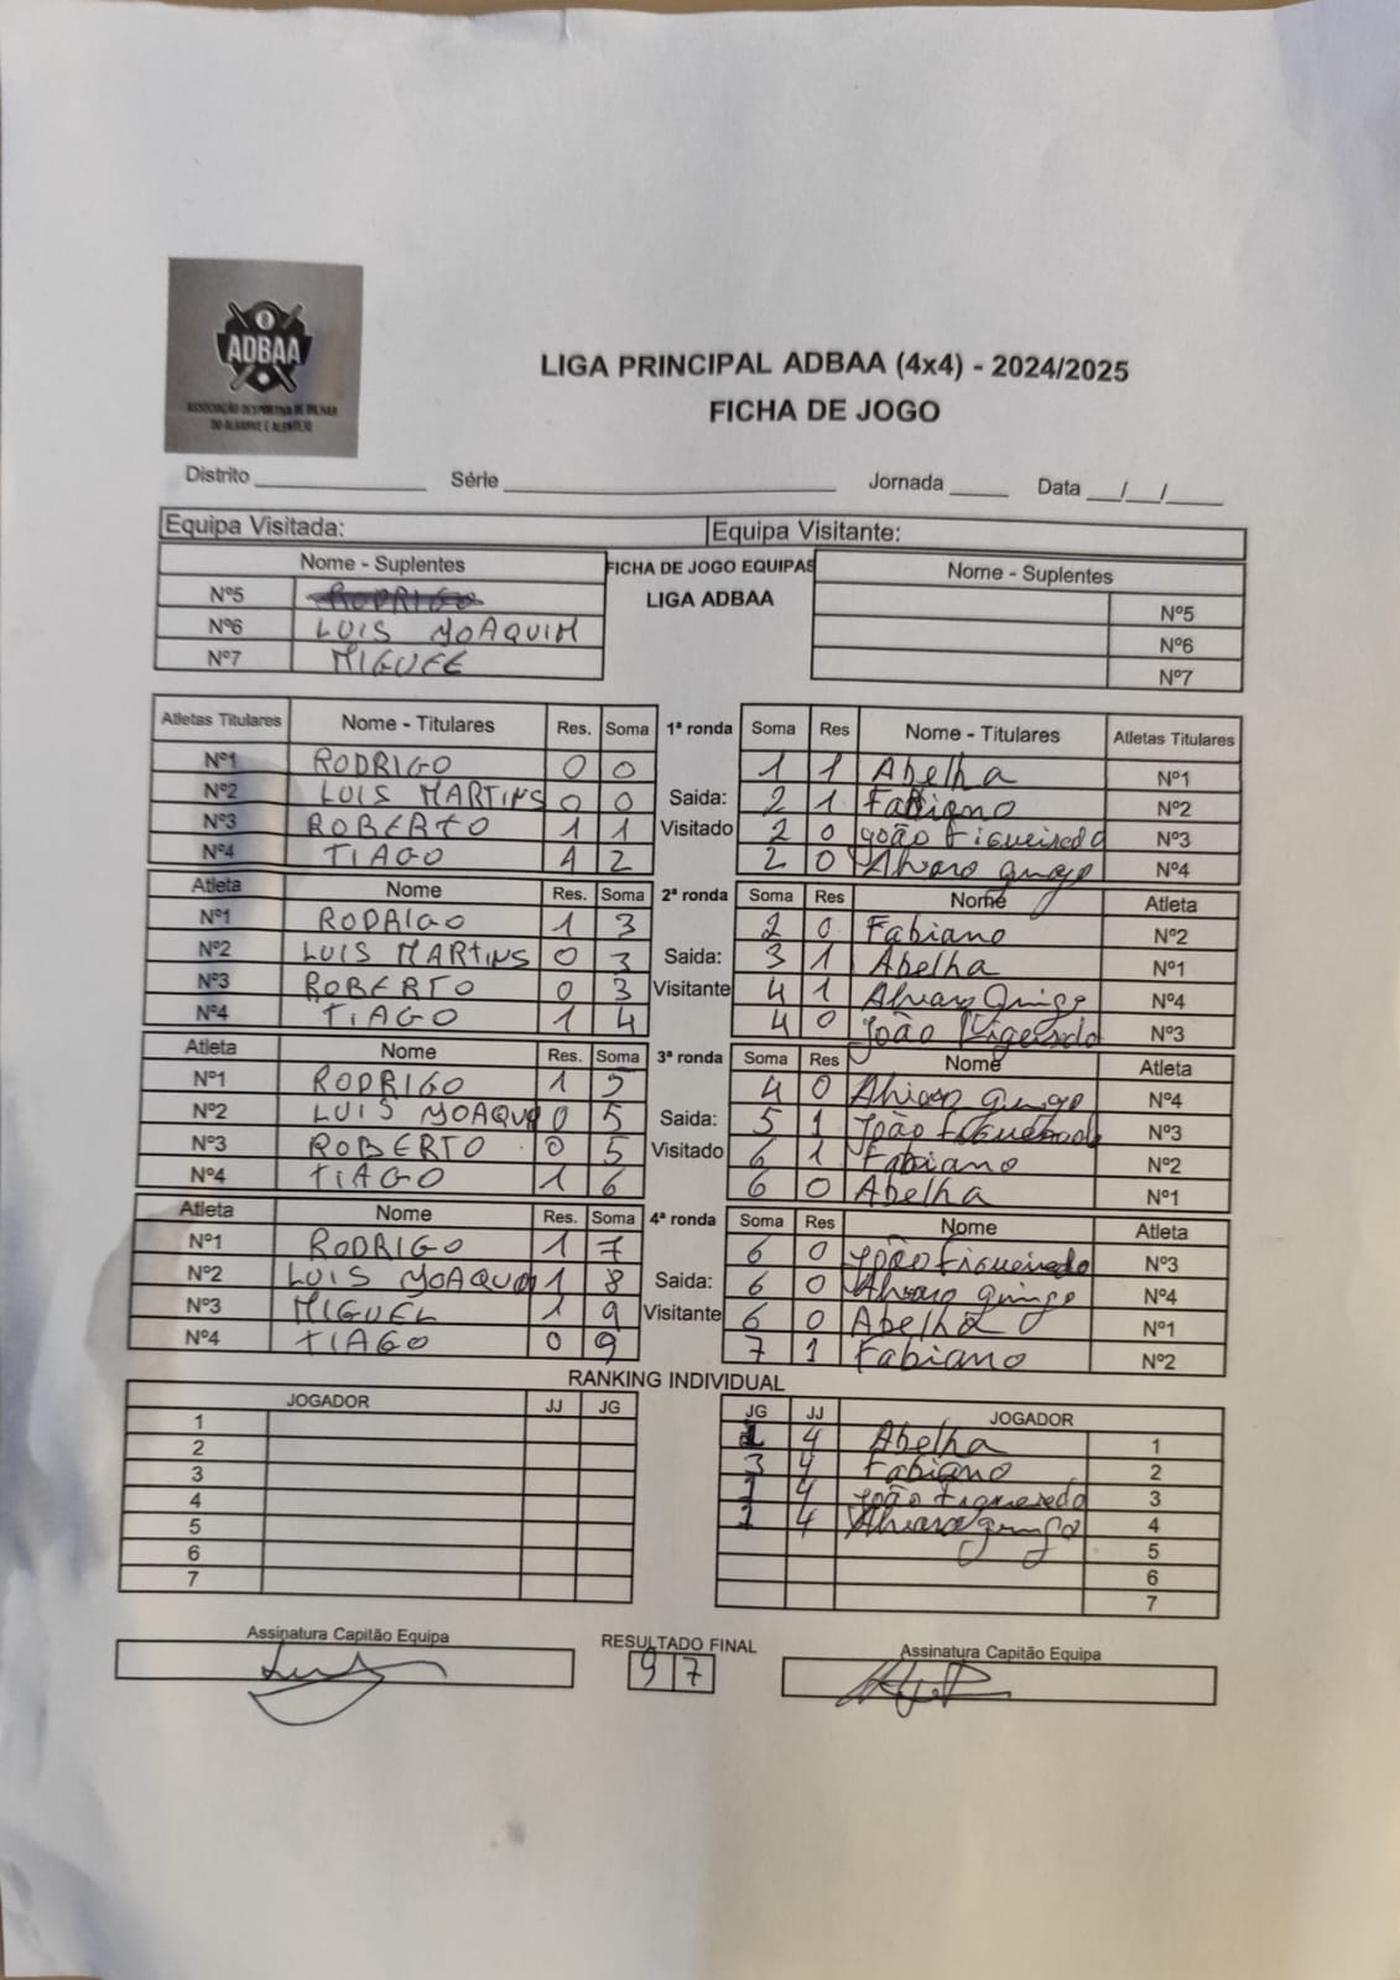 ADBAA
ASSOCIAÇÃO DESPORTIVA DE BILHAR
DO ALGARVE E ALENTEJO
LIGA PRINCIPAL ADBAA (4x4) - 2024/2025
FICHA DE JOGO
Distrito Série Jornada Data / /
Equipa Visitada: Equipa Visitante:
Nome - Suplentes FICHA DE JOGO EQUIPAS Nome - Suplentes
LIGA ADBAA
Nº5 RODRIGO Nº5
Nº6 LUIS JOAQUIM Nº6
Nº7 MIGUEL Nº7
Atletas Titulares Nome - Titulares Res. Soma 1ª ronda Soma Res Nome - Titulares Atletas Titulares
Nº1 RODRIGO 0 0 1 1 Abelha Nº1
Nº2 LUIS MARTINS 0 0 Saida: 2 1 Fabiano Nº2
Nº3 ROBERTO 1 1 Visitado 2 0 João Figueiredo Nº3
Nº4 TIAGO 1 2 2 0 Alvaro gringo Nº4
Atleta Nome Res. Soma 2ª ronda Soma Res Nome Atleta
Nº1 RODRIGO 1 3 2 0 Fabiano Nº2
Nº2 LUIS MARTINS 0 3 Saida: 3 1 Abelha Nº1
Nº3 ROBERTO 0 3 Visitante 4 1 Alvaro Gringo Nº4
Nº4 TIAGO 1 4 4 0 João Figeiredo Nº3
Atleta Nome Res. Soma 3ª ronda Soma Res Nome Atleta
Nº1 RODRIGO 1 5 4 0 Alvaro gringo Nº4
Nº2 LUIS JOAQUI 0 5 Saida: 5 1 João Figueiredo Nº3
Nº3 ROBERTO 0 5 Visitado 6 1 Fabiano Nº2
Nº4 TIAGO 1 6 6 0 Abelha Nº1
Atleta Nome Res. Soma 4ª ronda Soma Res Nome Atleta
Nº1 RODRIGO 1 7 6 0 João Figueiredo Nº3
Nº2 LUIS JOAQUI 1 8 Saida: 6 0 Alvaro gringo Nº4
Nº3 MIGUEL 1 9 Visitante 6 0 Abelha Nº1
Nº4 TIAGO 0 9 7 1 Fabiano Nº2
RANKING INDIVIDUAL
JOGADOR JJ JG JG JJ JOGADOR
1 4 Abelha 1
2 3 4 Fabiano 2
3 1 4 João Figueiredo 3
4 1 4 Alvaro gringo 4
5 5
6 6
7 7
Assinatura Capitão Equipa RESULTADO FINAL Assinatura Capitão Equipa
9 7